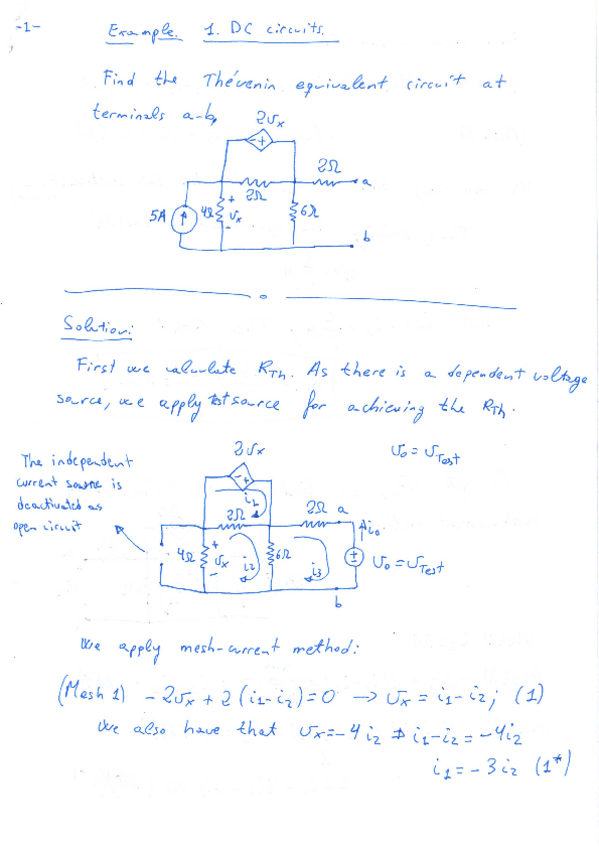 -1-
Example. 1. DC circuits.
Find the Thévenin equivalent circuit at
terminals a-b,
2υx
- +
2Ω
a
2Ω
5A
4Ω
+
υx
-
6Ω
b
Solution:
First we calculate RTh. As there is a dependent voltage
source, we apply test source for achieving the RTh.
The independent
current source is
deactivated as
open circuit
υo = υTest
2υx
- +
i1
2Ω
2Ω
a
io
4Ω
+
υx
-
i2
6Ω
i3
±
υo = υTest
b
We apply mesh-current method:
(Mesh 1) - 2υx + 2 (i1-i2) = 0 → υx = i1-i2; (1)
We also have that υx = -4 i2 ⇒ i1-i2 = -4i2
i1 = -3 i2 (1*)